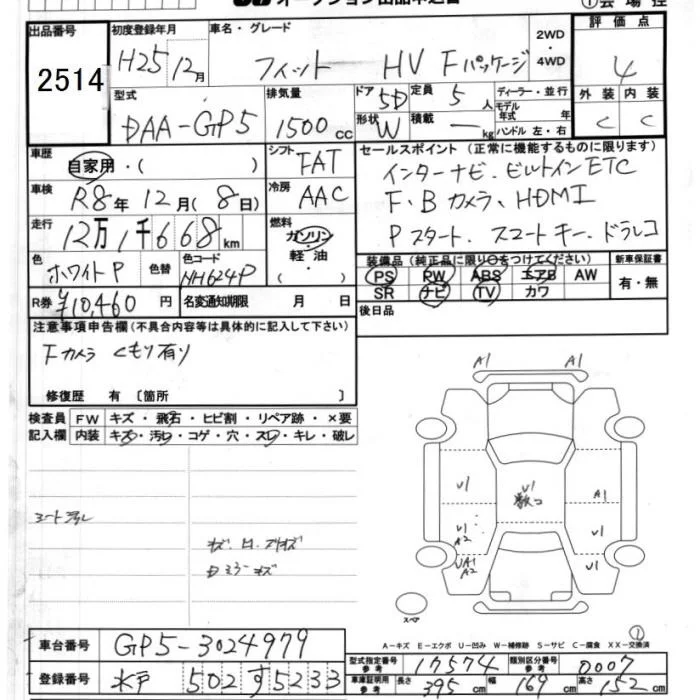 オークション出品申込書
① 会場控
出品番号 2514
初度登録年月 H25 12月
車名・グレード フィット HV Fパッケージ
2WD・4WD
評価点 4
外装 C 内装 C
型式 DAA-GP5
排気量 1500 cc
ドア 5D 定員 5人
形状 W 積載 — kg
ディーラー・並行
モデル年式 年
ハンドル 左・右
車歴 自家用・( )
シフト FAT
車検 R8年 12月(8日)
冷房 AAC
走行 12万1千668km
燃料 ガソリン・軽油
色 ホワイトP 色替 色コード NH624P
R券 ¥10,460円
名変通知期限 月 日
セールスポイント (正常に機能するものに限ります)
インターナビ. ビルトインETC
F、B カメラ、HDMI
Pスタート. スマートキー. ドラレコ
装備品(純正品に限り○をつけてください) 新車保証書
PS PW ABS エアB AW 有・無
SR ナビ TV カワ
後日品
注意事項申告欄(不具合内容等は具体的に記入して下さい)
Fカメラ くもり有り
修復歴 有〔箇所 〕
検査員記入欄
FW キズ・飛石・ヒビ割・リペア跡・×要
内装 キズ・汚レ・コゲ・穴・スレ・キレ・破レ
シート汚レ
A1 A1
U1 U1 A1
U1 A2 U1
UA1 A2 U1
スペア
①
A-キズ E-エクボ U-凹み W-補修跡 S-サビ C-腐食 XX-交換済
車台番号 GP5-3024979
登録番号 水戸 502 す 5233
型式指定番号 参考 17574 類別区分番号 参考 0007
車庫証明用 参考 長さ 395cm 幅 169cm 高さ 152cm